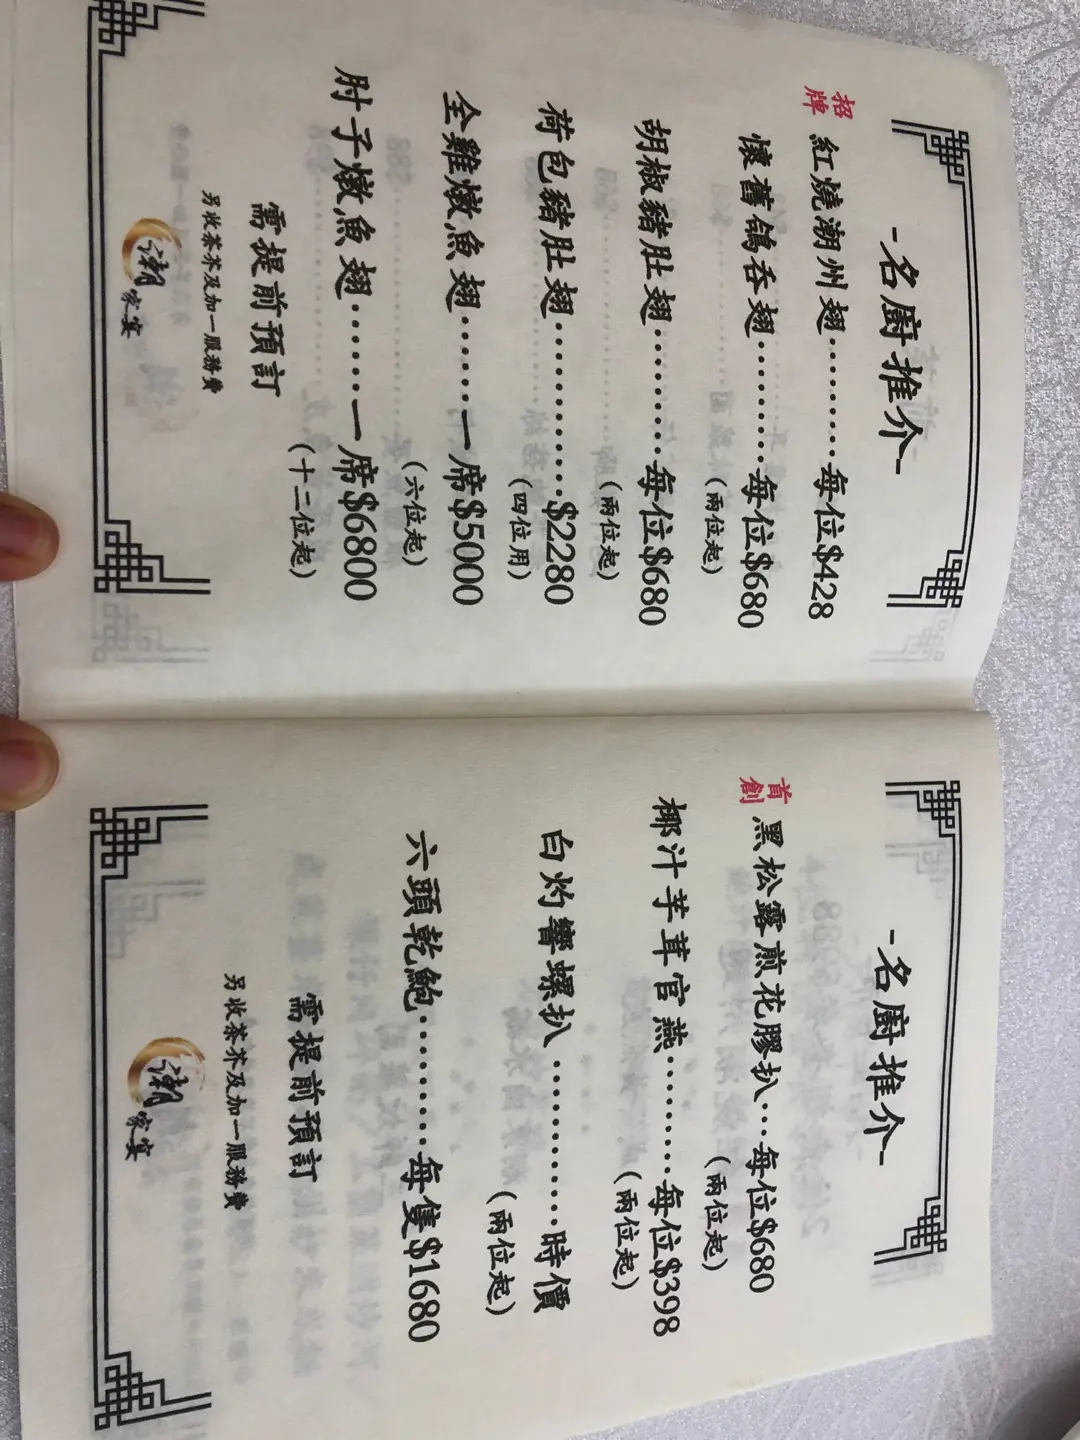 -名廚推介-
招牌
紅燒潮州翅..........每位$428
懷舊鴿吞翅..........每位$680
(兩位起)
胡椒豬肚翅..........每位$680
(兩位起)
荷包豬肚翅..............$2280
(四位用)
全雞燉魚翅.......一席$5000
(六位起)
肘子燉魚翅......一席$6800
(十二位起)
需提前預訂
另收茶芥及加一服務費
潮
家宴
-名廚推介-
首創
黑松露煎花膠扒...每位$680
(兩位起)
椰汁芋茸官燕.........每位$398
(兩位起)
白灼響螺扒.............時價
(兩位起)
六頭乾鮑.........每隻$1680
需提前預訂
另收茶芥及加一服務費
潮
家宴